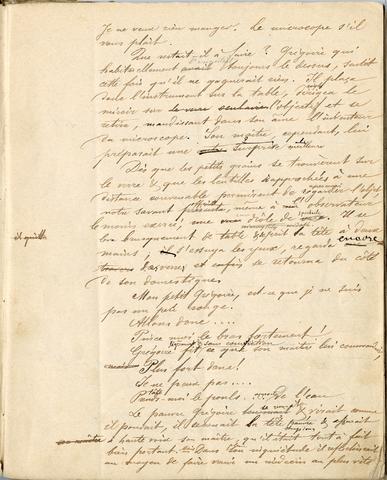 Je ne veux rien manger. Le microscope s'il
vous plaît.
Que restait-il à faire? Grégoire qui
habituellement avait toujours le dessus, sentit
cette fois qu'il ne gagnerait rien. Il plaça
donc l'instrument sur la table, dirigea le
miroir sur l'objectif et se
retira, maudissant dans son âme l'inventeur
du microscope. Son maître, cependant, lui
préparait une surprise
Dès que les petits grains se trouvèrent sur
le verre & que les lentilles approchées à une
distance convenable permirent de l'objet
notre savant même à l'observateur
le moins exercé, une drôle de Il se
brusquement de table la tête à deux
mains, s'essuya les yeux, regarda encore
et enfin se retourna du côté
de son domestique.
Mon petit Grégoire, est-ce que je ne suis
pas un peu rouge.
Allons donc....
Pince moi le bras fortement!
Grégoire fit ce que son maître lui commandait
Plus fort donc!
Je ne peux pas....
Tâte-moi le pouls. De l'eau
Le pauvre Grégoire & versait comme
il pouvait, il secouait la tête &
à haute voix son maître, qu'il était tout à fait
bien portant. Dans son inquiétude il réfléchissait
au moyen de faire venir un médecin au plus vite